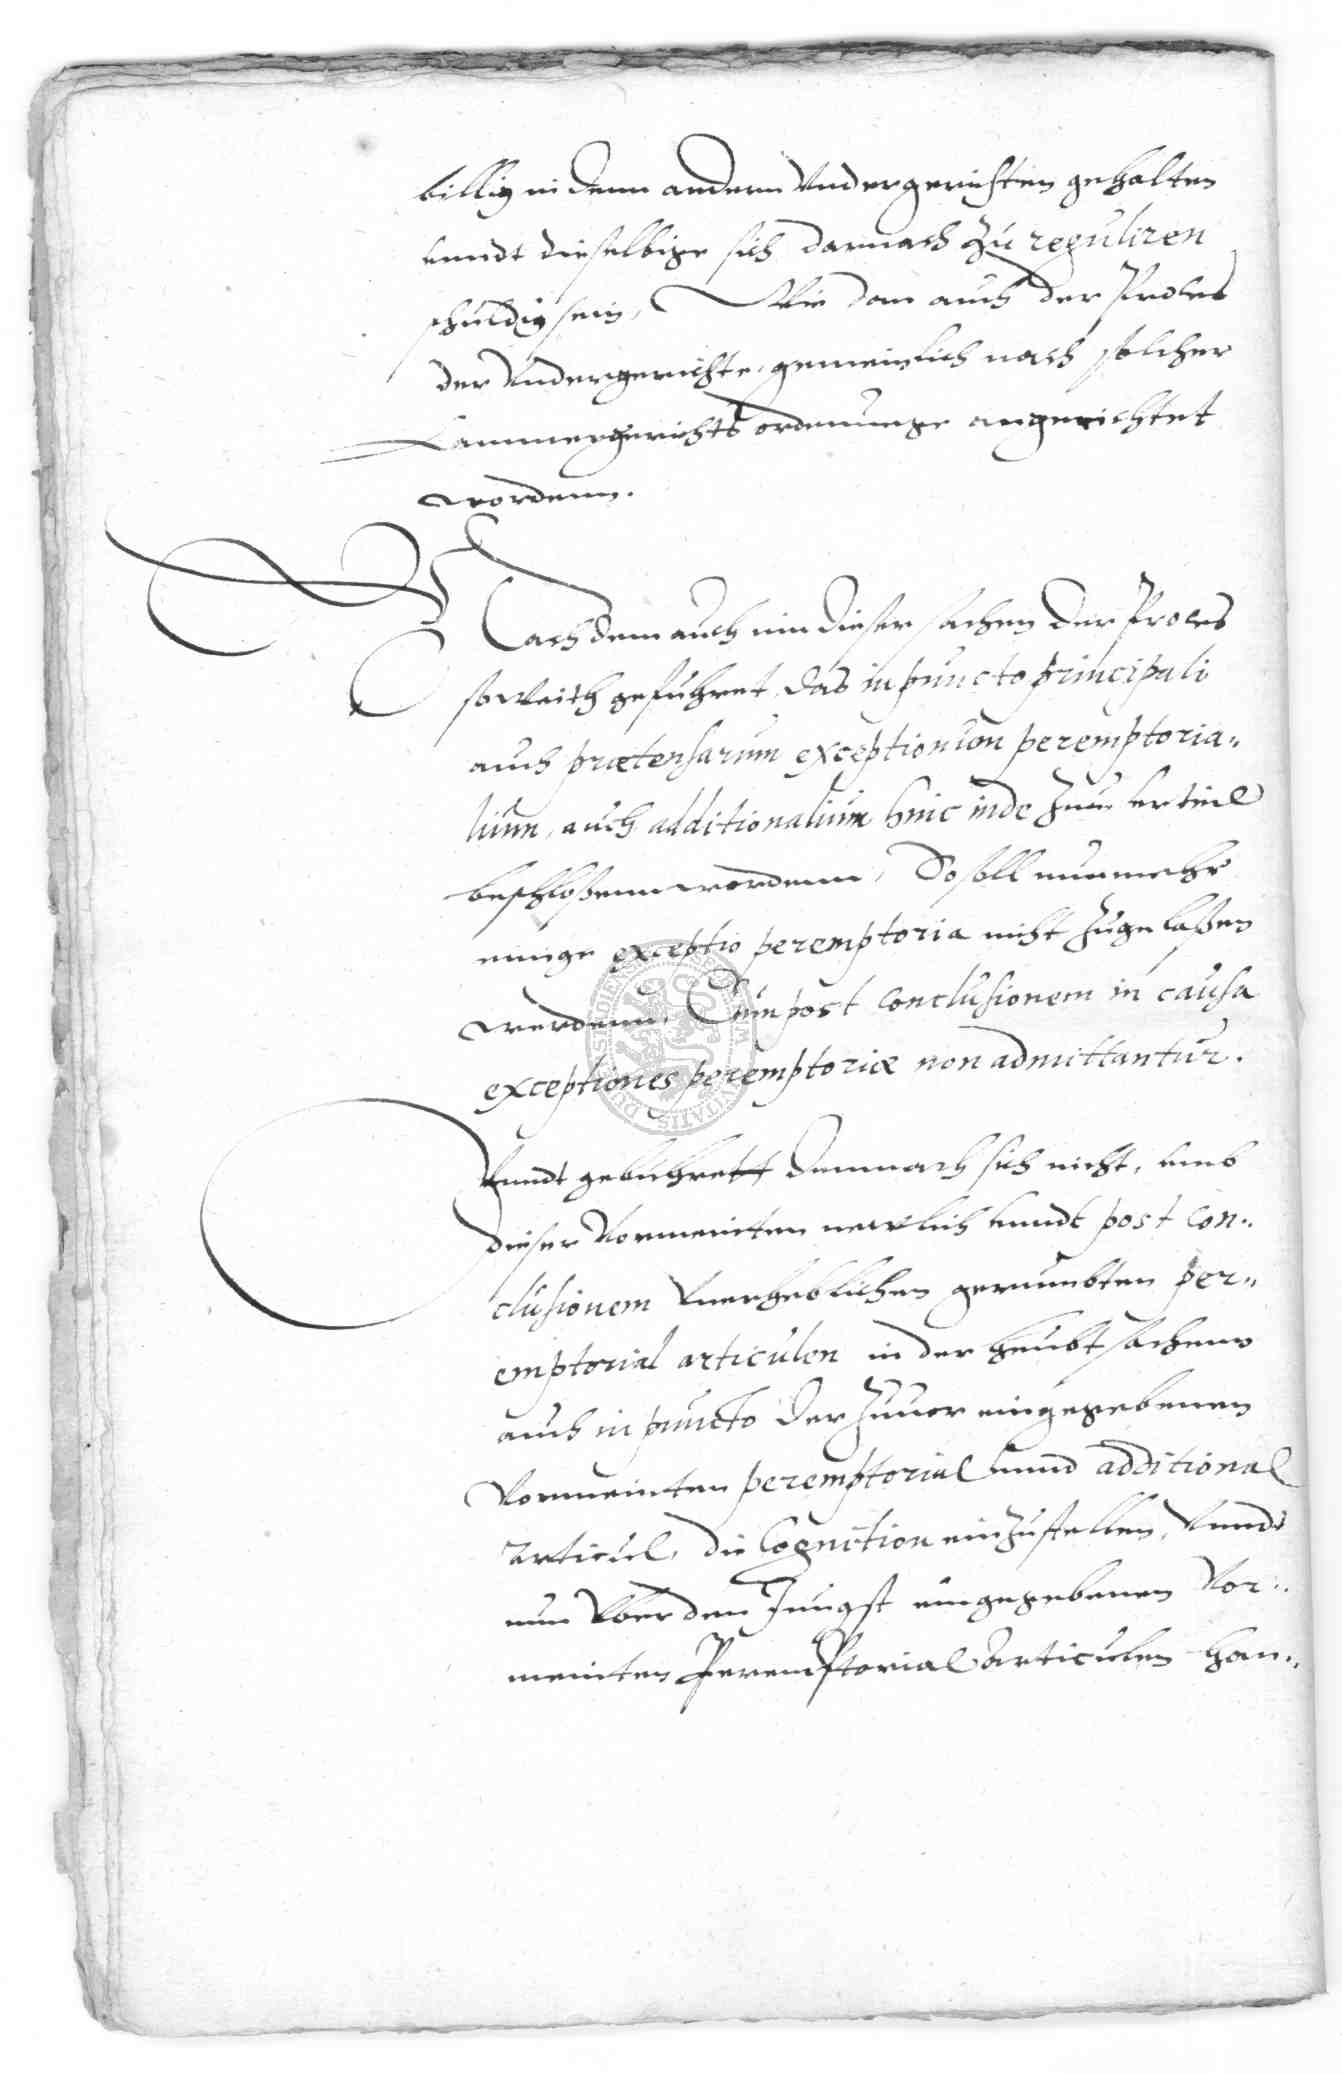 billig in denn andern Undergerichten gehalten
unndt dieselbige sich darnach zu reguliren
schuldig sein, Wie dan auch der Proces
der Undergerichte, gemeinlich nach solcher
Cammergerichts ordnunge angerichtet
wordenn.
Nach dem auch inn dieser sachen der Proces
so weith gefuhret, das in puncto principali
auch prætensarum exceptionum peremptoria„
lium, auch additionalium hinc inde zum urteil
beschloßenn wordenn, So soll nunmehr
einige exceptio peremptoria nicht zugelaßen
werdenn. Cum post conclusionem in causa
exceptiones peremptoriæ non admittantur.
Unndt gebuhrett demnach sich nicht, umb
dieser vormeinten newlich unndt post con„
clusionem unerheblichen per„
emptorial articulen in der heubtsachenn
auch in puncto der zuuor eingegebenen
vormeinten peremptorial unnd additional
articul, die Cognition einzustellen, unndt
nun uber den Jungst eingegebenen vor„
meinten Peremptorial Articulen han„
DUISBURGENSIS CIVITATIS